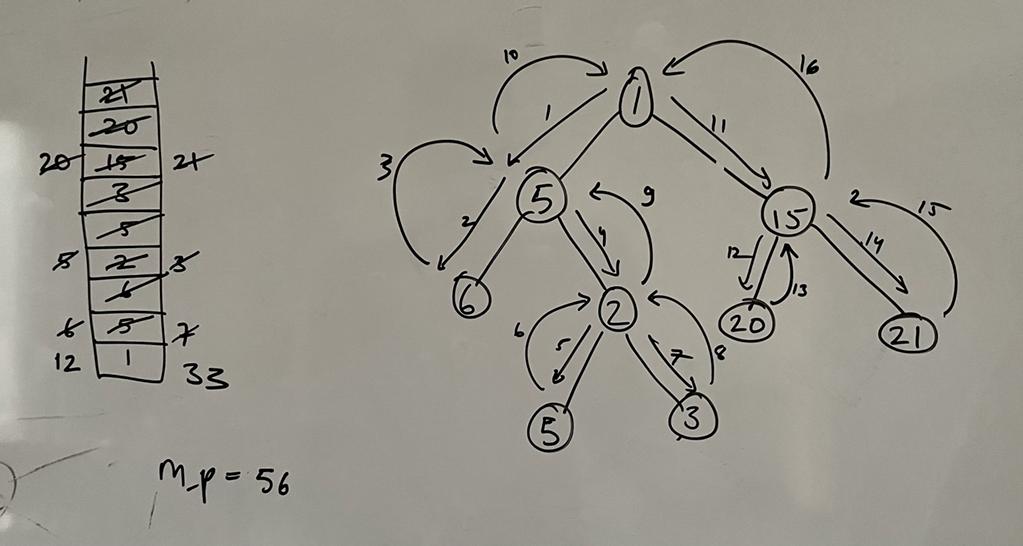 21
20
20 15 21
3
5
5 2 3
6
6 5 7
12 1 33
m_p = 56
10 16
1 1 11
3
5 9 15 2 15
2 4 12 14
6 13
2 20 21
6 5 7 8
5 3